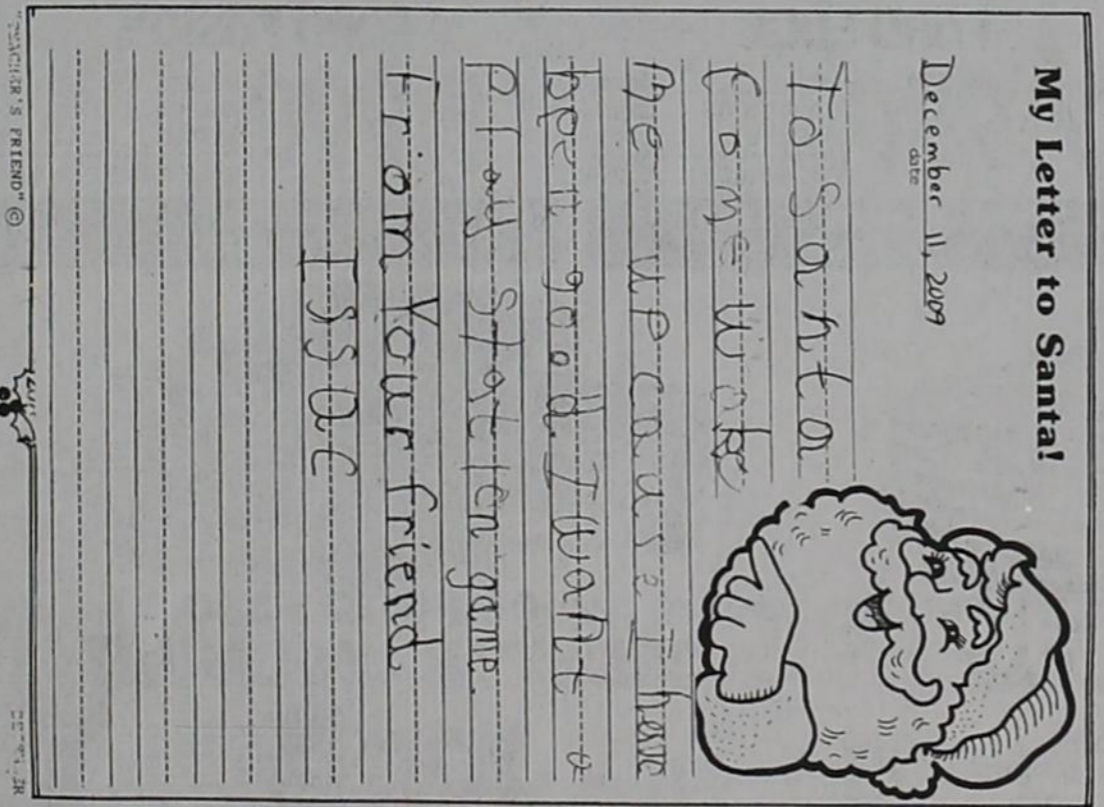 My Letter to Santa!
December 11, 2009
date
To Santa
Come wake
me up cause I have
been good I want a
Play Station game.
from Your friend
Issac
"TEACHER'S FRIEND" ©